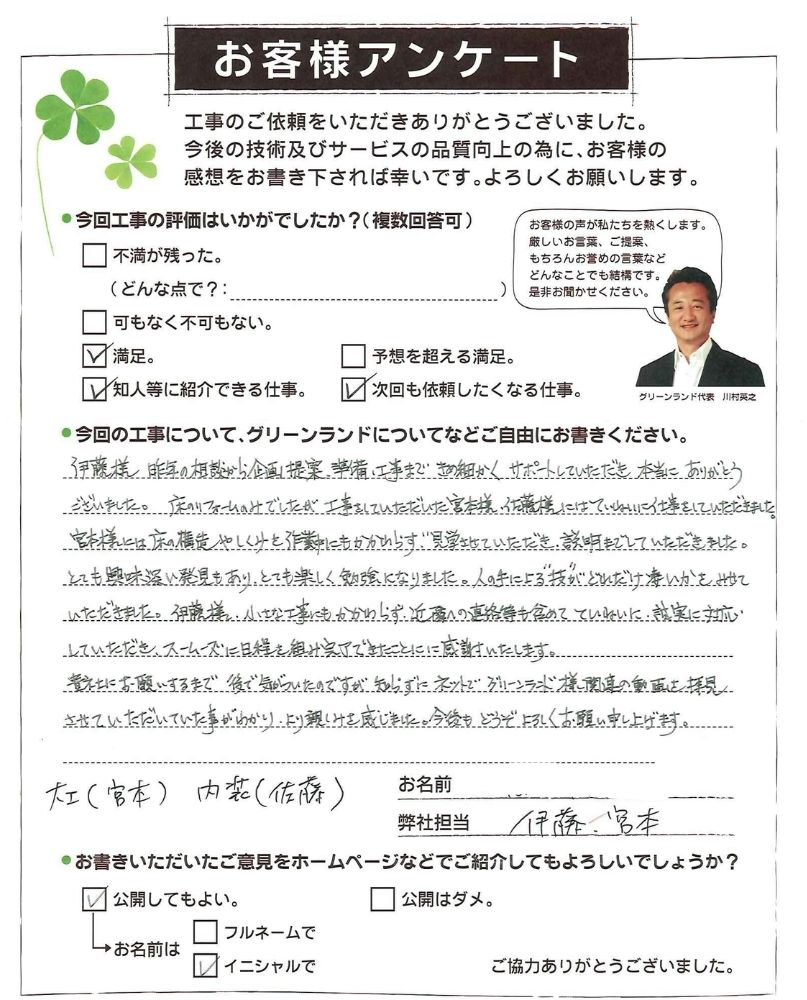 お客様アンケート
工事のご依頼をいただきありがとうございました。
今後の技術及びサービスの品質向上の為に、お客様の
感想をお書き下されば幸いです。よろしくお願いします。
●今回工事の評価はいかがでしたか?(複数回答可)
不満が残った。
(どんな点で?: )
可もなく不可もない。
満足。
予想を超える満足。
知人等に紹介できる仕事。
次回も依頼したくなる仕事。
お客様の声が私たちを熱くします。
厳しいお言葉、ご提案、
もちろんお誉めの言葉など
どんなことでも結構です。
是非お聞かせください。
グリーンランド代表 川村英之
●今回の工事について、グリーンランドについてなどご自由にお書きください。
伊藤様 昨年の相談から企画提案、準備、工事まできめ細かくサポートしていただき本当にありがとう
ございました。床のリフォームのみでしたが工事をしていただいた宮本様、佐藤様にはていねいに仕事をしていただきました。
宮本様には床の構造やしくみを作業中にもかかわらず"見学させていただき、説明までしていただきました。
とても興味深い発見もあり、とても楽しく勉強になりました。人の手による"技"がどれだけ凄いかをみせて
いただきました。伊藤様、小さな工事にもかかわらず、近隣への連絡等も含めてていねいに、誠実に対応
していただき、スムーズに日程を組み完了できたことにに感謝いたします。
貴社にお願いするまで後で気がついたのですが知らずにネットでグリーンランド様関連の動画を拝見
させていただいていた事がわかり、より親しみを感じました。今後もどうぞよろしくお願い申し上げます。
大工(宮本) 内装(佐藤)
お名前
弊社担当 伊藤、宮本
●お書きいただいたご意見をホームページなどでご紹介してもよろしいでしょうか?
公開してもよい。
公開はダメ。
お名前は
フルネームで
イニシャルで
ご協力ありがとうございました。